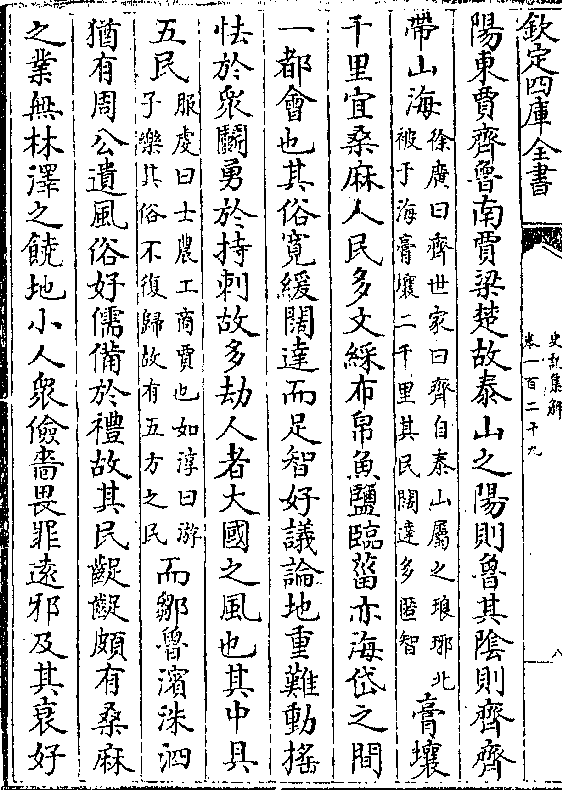 欽定四庫全書
史記集解
卷一百二十九
八
陽東賈齊魯南賈梁楚故泰山之陽則魯其陰則齊齊
帶山海徐廣曰齊世家曰齊自泰山屬之琅琊北被于海膏壤二千里其民闊達多匿智膏壤
千里宜桑麻人民多文綵布帛魚鹽臨菑亦海岱之間
一都會也其俗寛緩闊達而足智好議論地重難動搖
怯於衆鬭勇於持刺故多劫人者大國之風也其中具
五民服虔曰士農工商賈也如淳曰游子樂其俗不復歸故有五方之民而鄒魯濱洙泗
猶有周公遺風俗好儒備於禮故其民齪齪頗有桑麻
之業無林澤之饒地小人衆儉嗇畏罪遠邪及其衰好